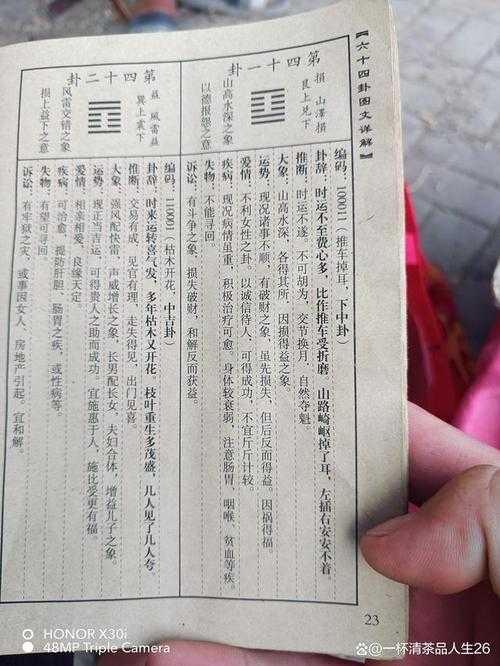 【六十四卦图文详解】
第四十一卦
损 山泽损
艮上兑下
山高水深之象
以德报怨之意
编码:100011(推车掉耳,下中卦)
卦辞:时运不至费心多,比作推车受折磨,山路崎岖掉了耳,左插右安安不着
推断:时运不遂。不可胡为,交节换月,自然夺魁。
大象:山高水深,各得其所,因损得益之象。
运势:现况诸事不顺,有破财之象,虽先损失,但后反而得益。因祸得福
爱情:不利女性之卦。以诚信待人,可得成功,不宜斤斤计较。
疾病:现况病情虽重,积极治疗可愈。身体较衰弱,注意肠胃、咽喉、贫血等疾。
失物:不能寻回
诉讼:有斗争之象,损失破财,和解反而获益。
第四十二卦
益 風雷益
巽上震下
风雷交错之象
损上益下之意
编码:110001(枯木开花,中吉卦)
卦辞:时来运转喜气发,多年枯木又开花,枝叶重生多茂盛,几人见了几人夸
推断:交易有成,见官有理,走失得见,出门见喜。
大象:强风配快雷,声威增长之象,长男配长女,夫妇合体,增益儿子之象。
运势:现正当吉运,可得贵人之助而成功。宜施惠于人,施比受更有福。
爱情:相亲相爱,良缘天定。
疾病:可治愈,提防肝胆、肠胃之疾,或性病等。
失物:有望可寻回。
诉讼:有牢狱之灾,或事因女人、房地产引起。宜和解。
23
HONOR X30i
48MP Triple Camera
@一杯清茶品人生26